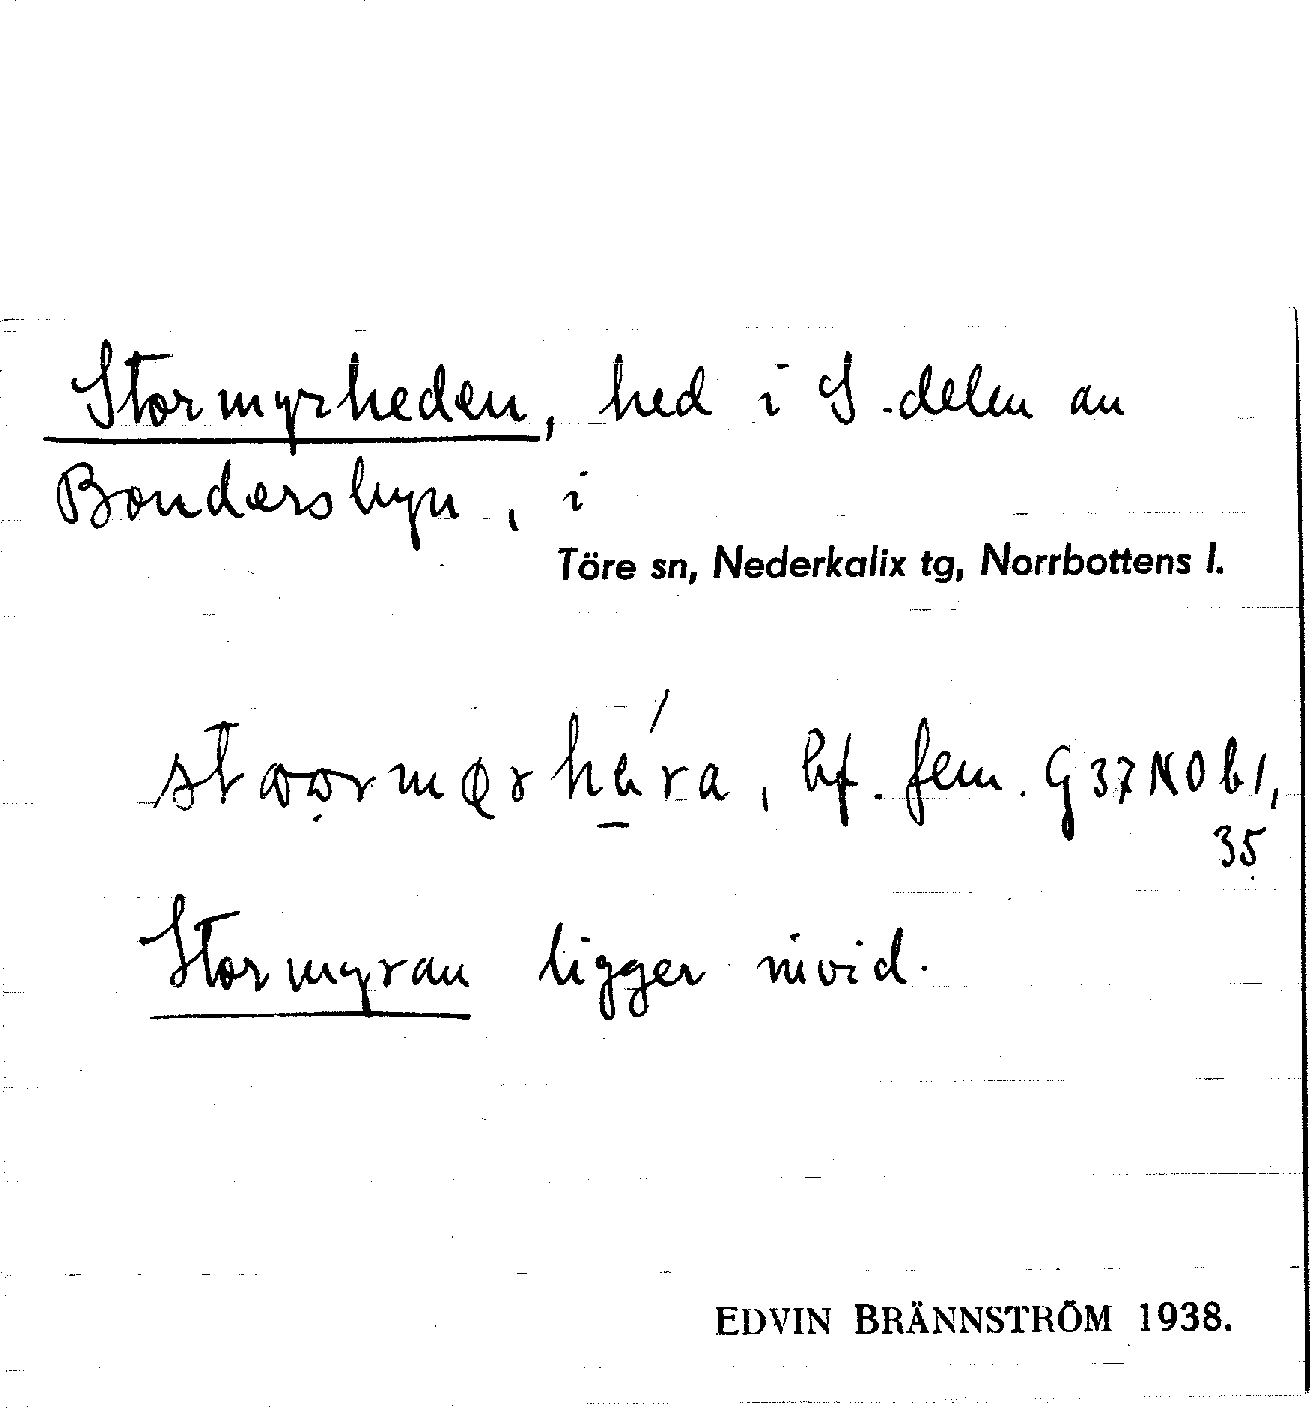 Stormyrheden, hed i S-delen av
Bondersbyn, i
Töre sn, Nederkalix tg, Norrbottens l.
bf. fem. G 37 NO b 1,
35
Stormyran ligger invid.
EDVIN BRÄNNSTRÖM 1938.